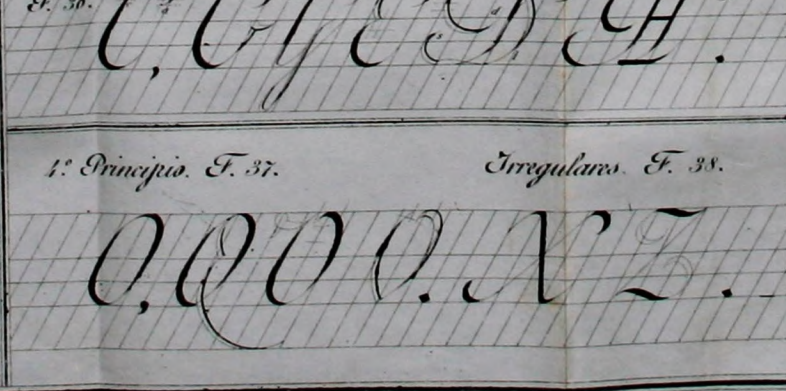 F. 36.
C, C G E D H.
4.º Principio. F. 37.
Irregulares. F. 38.
O, Q O O. X Z.